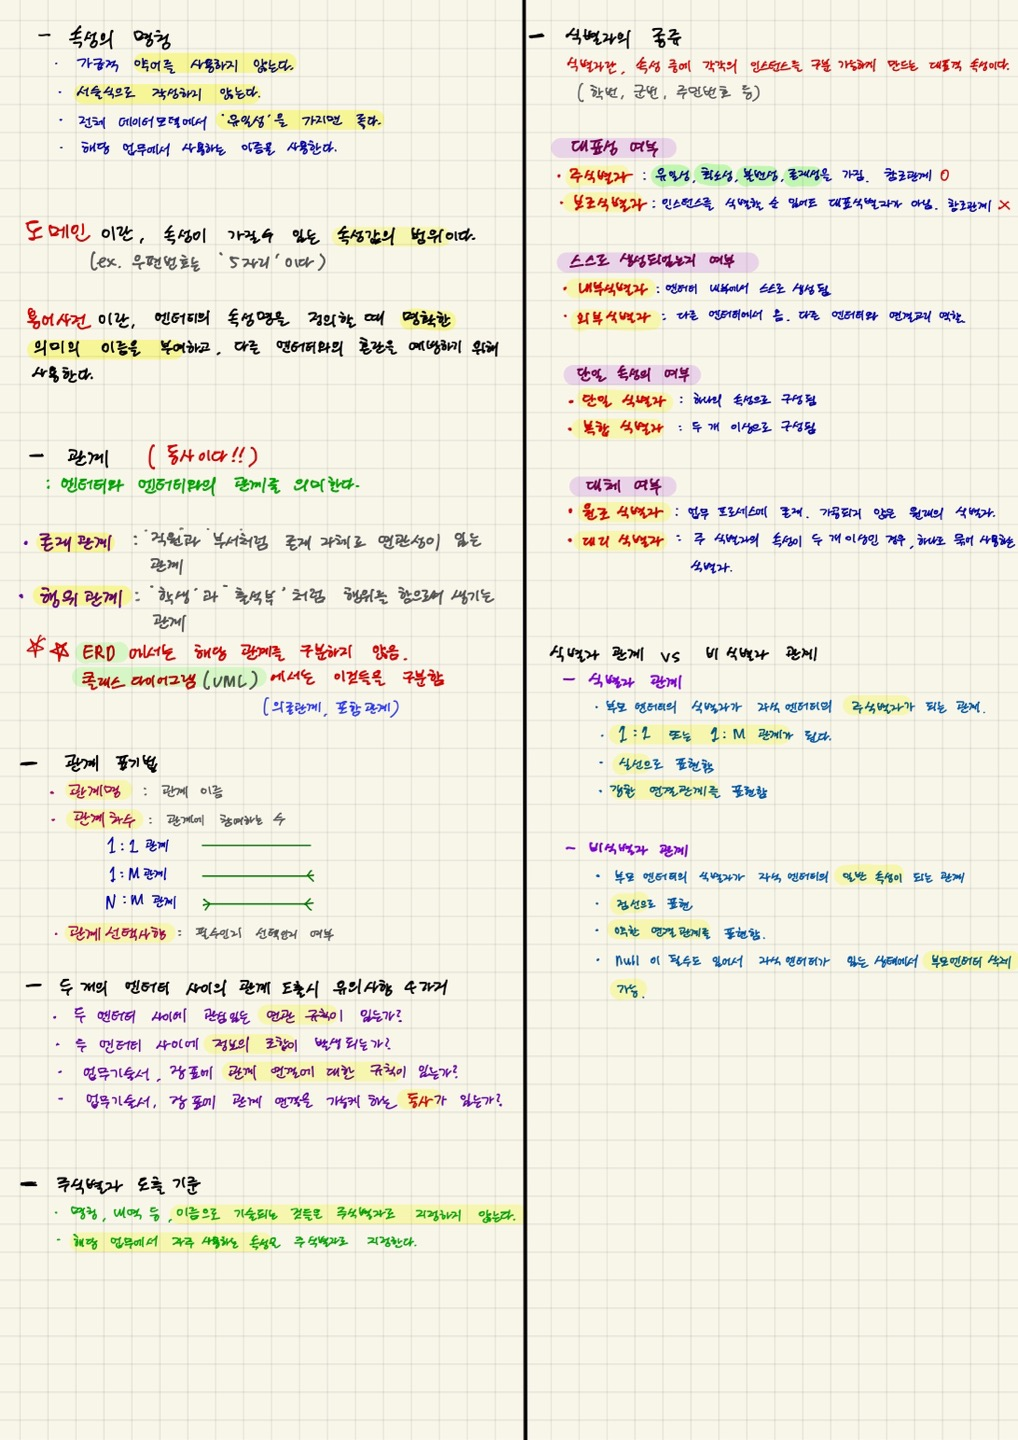 - 속성의 명칭
· 가급적 약어를 사용하지 않는다.
· 서술식으로 작성하지 않는다.
· 전체 데이터모델에서 '유일성'을 가지면 좋다.
· 해당 업무에서 사용하는 이름을 사용한다.
도메인 이란, 속성이 가질수 있는 속성값의 범위이다.
(ex. 우편번호는 '5자리' 이다)
용어사전 이란, 엔터티의 속성명을 정의할 때 명확한
의미의 이름을 부여하고, 다른 엔터티와의 혼란을 예방하기 위해
사용한다.
- 관계 (동사이다!!)
: 엔터티와 엔터티와의 관계를 의미한다.
· 존재 관계 : "직원"과 "부서"처럼 존재 자체로 연관성이 있는
관계
· 행위 관계 : "학생"과 "출석부"처럼 행위를 함으로써 생기는
관계
☆☆ ERD 에서는 해당 관계를 구분하지 않음.
클래스 다이어그램(UML) 에서는 이것들을 구분함
(의존관계, 포함관계)
- 관계 표기법
· 관계명 : 관계 이름
· 관계차수 : 관계에 참여하는 수
1:1 관계
1:M 관계
N:M 관계
· 관계선택사항 : 필수인지 선택인지 여부
- 두 개의 엔터티 사이의 관계 도출시 유의사항 4가지
· 두 엔터티 사이에 관심있는 연관 규칙이 있는가?
· 두 엔터티 사이에 정보의 조합이 발생 되는가?
· 업무기술서, 장표에 관계 연결에 대한 규칙이 있는가?
- 업무기술서, 장표에 관계 연결을 가능케 하는 동사가 있는가?
- 주식별자 도출 기준
· 명칭, 내역 등, 이름으로 기술되는 것들은 주식별자로 지정하지 않는다.
· 해당 업무에서 자주 사용하는 속성을 주식별자로 지정한다.
- 식별자의 종류
식별자란, 속성 중에 각각의 인스턴스를 구분 가능하게 만드는 대표격 속성이다.
(학번, 군번, 주민번호 등)
대표성 여부
· 주식별자 : 유일성, 최소성, 불변성, 존재성을 가짐. 참조관계 O
· 보조식별자 : 인스턴스를 식별할 순 있어도 대표식별자가 아님. 참조관계 X
스스로 생성되었는지 여부
· 내부식별자 : 엔터티 내부에서 스스로 생성됨
· 외부식별자 : 다른 엔터티에서 옴. 다른 엔터티와 연결고리 역할.
단일 속성의 여부
· 단일 식별자 : 하나의 속성으로 구성됨
· 복합 식별자 : 두 개 이상으로 구성됨
대체 여부
· 원조 식별자 : 업무 프로세스에 존재. 가공되지 않은 원래의 식별자.
· 대리 식별자 : 주 식별자의 속성이 두 개 이상인 경우, 하나로 묶어 사용하는
식별자.
식별자 관계 vs 비식별자 관계
- 식별자 관계
· 부모 엔터티의 식별자가 자식 엔터티의 주식별자가 되는 관계.
· 1:1 또는 1:M 관계가 된다.
· 실선으로 표현함
· 강한 연결관계를 표현함
- 비식별자 관계
· 부모 엔터티의 식별자가 자식 엔터티의 일반 속성이 되는 관계
· 점선으로 표현
· 약한 연결관계를 표현함.
· null 이 될수도 있어서 자식 엔터티가 있는 상태에서 부모엔터티 삭제
가능.